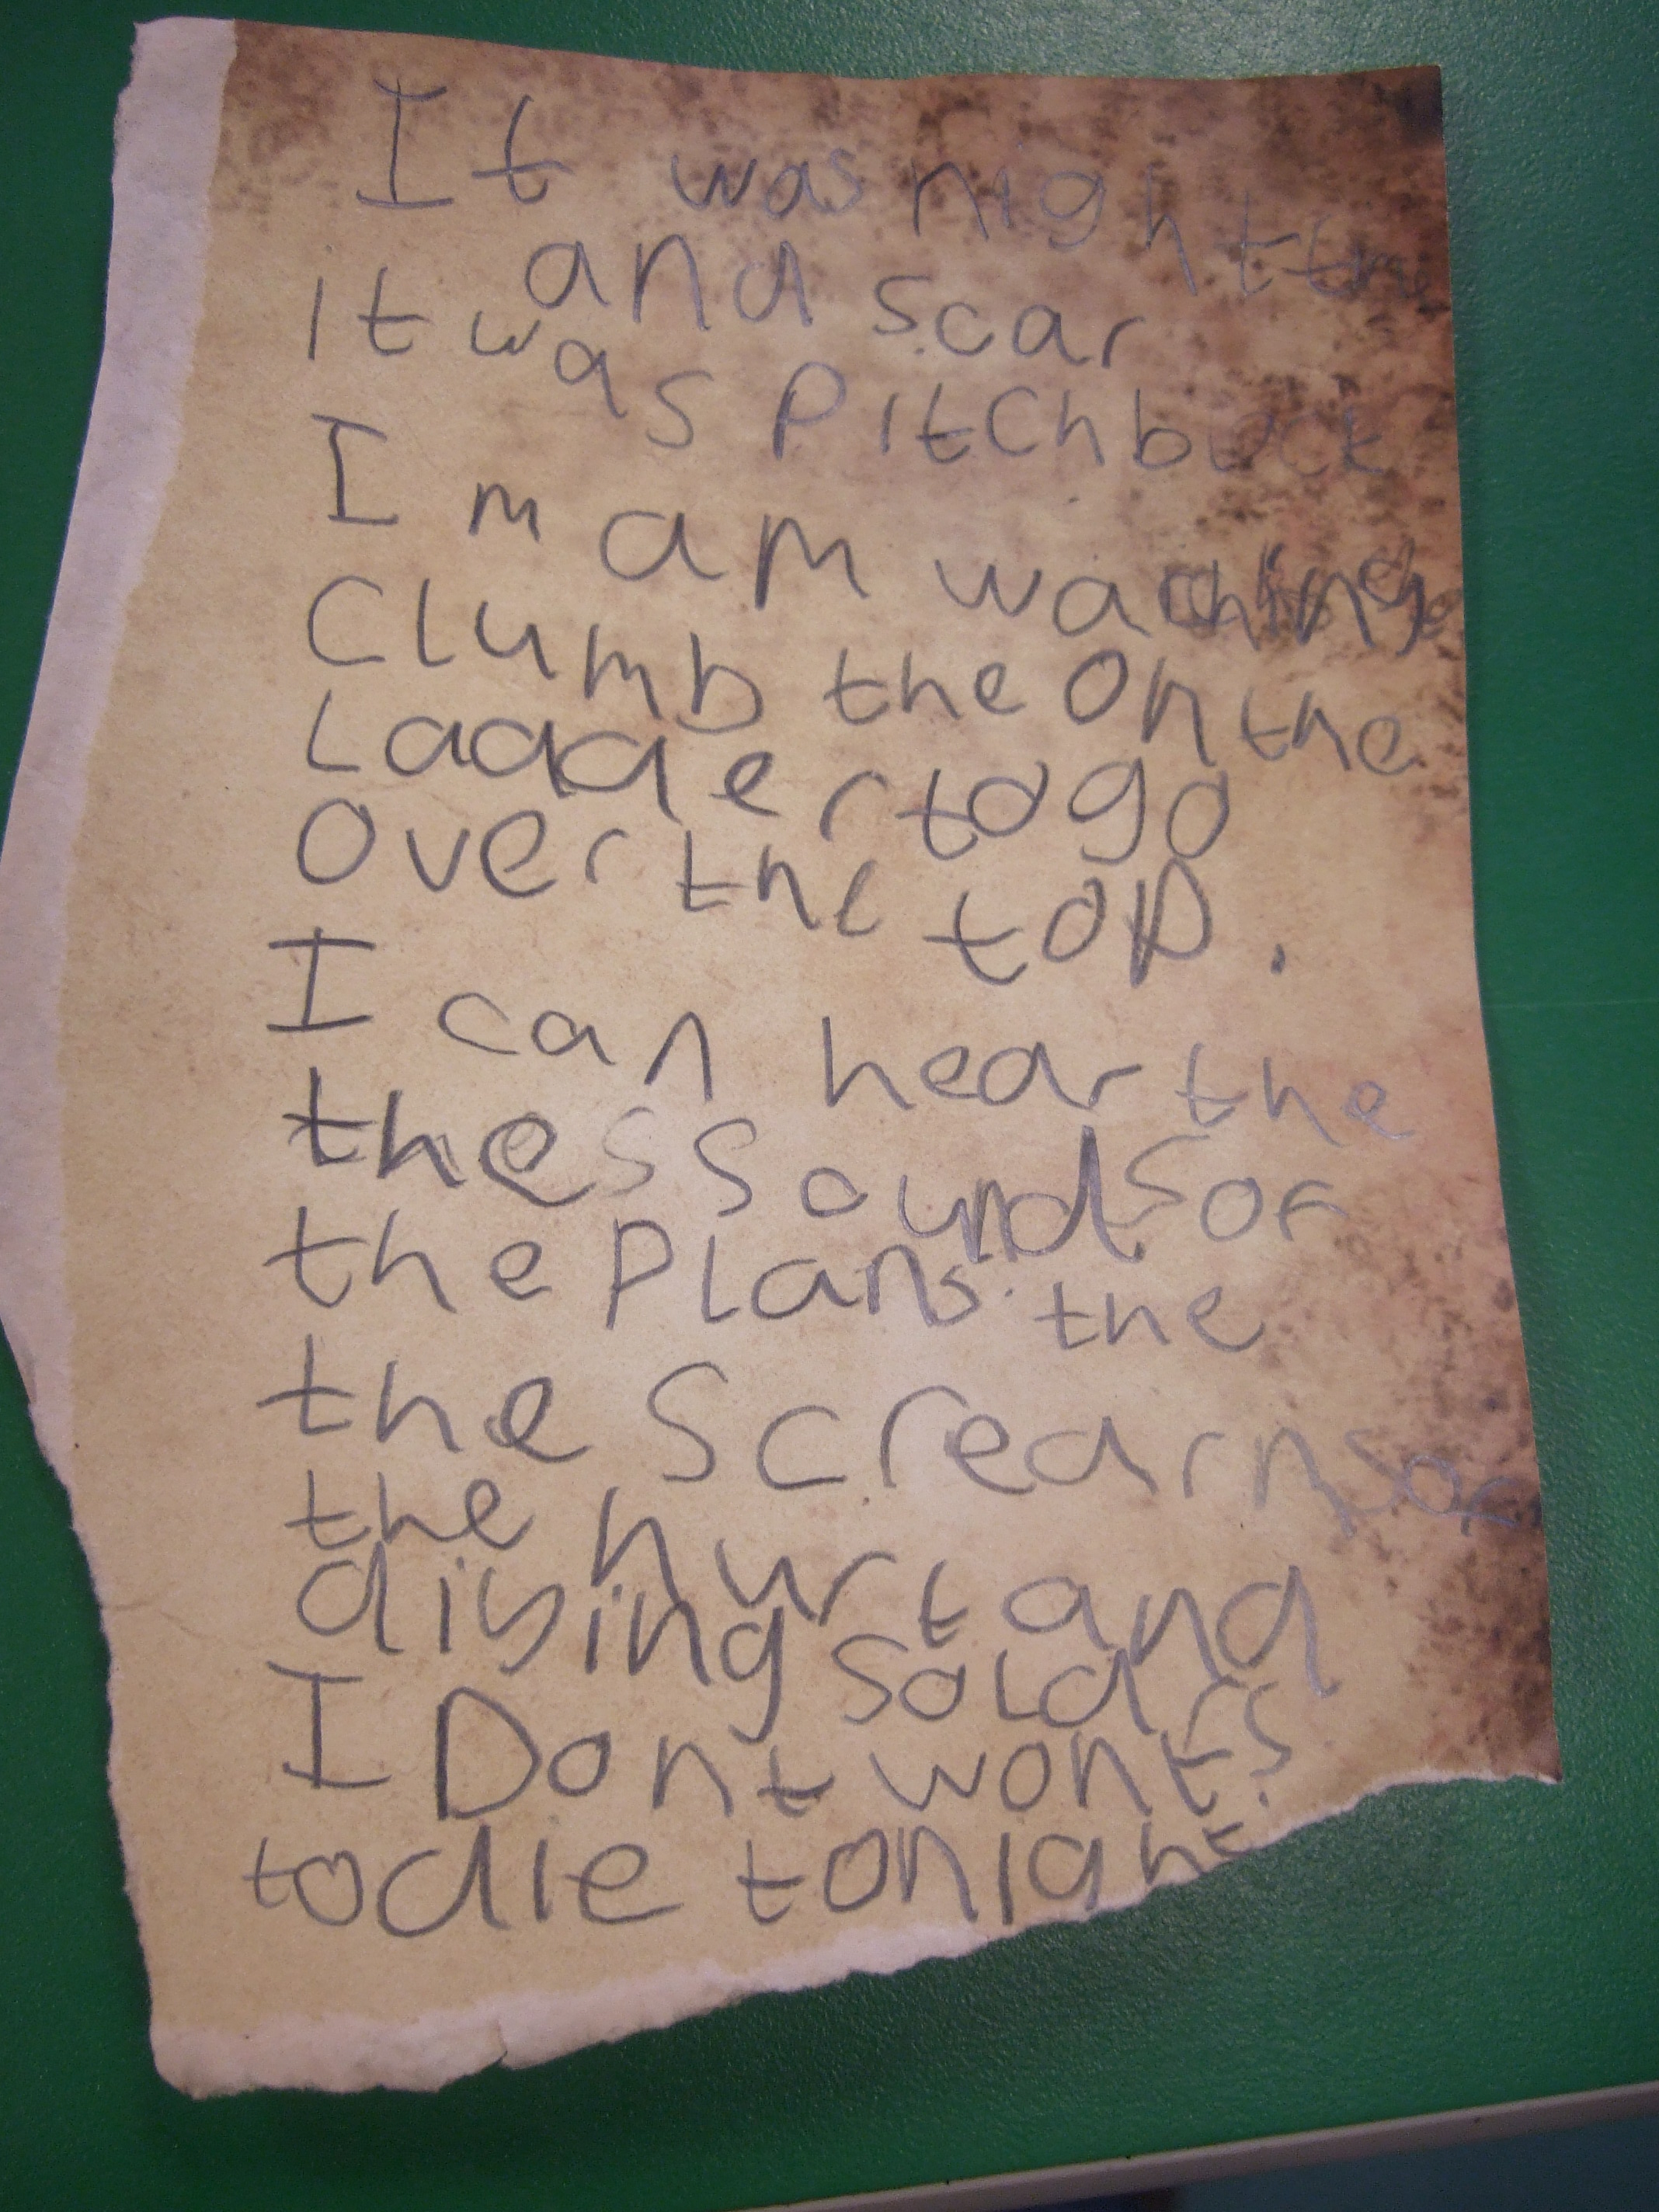 It was night
and scar
it was Pitchblack
I m am waching
Clumb the on the
Ladder to go
over the top.
I can hear the
thes Sounds of
the Plans. the
the Screarms of
the hurt and
diying Sold
rs.
I Dont wont
to die tonight